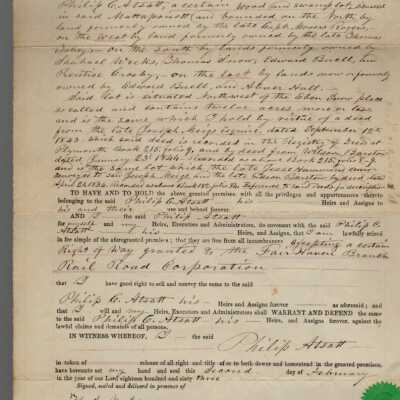 Philip C. Atsatt, a certain Wood and Swamp lot, situated
in said Mattapoisett and bounded on the North by
land formerly owned by the late
on the West by land formerly owned by the late Thomas
on the South by lands formerly owned by
Wicks, Thomas Snow, Edward Buell, and
Prentice Crosby, on the East by lands now or formerly
owned by Edward Buell, and Abner Hall.
Said lot is situated Northwest of the Eben Snow place
so called and contains twelve acres more or less
and is the same which I hold by virtue of a deed
from the late Joseph Meigs Esquire, dated September 12th
1843, which said deed is recorded in the Registry of Deeds at
Plymouth Book 215, folio 9, and by deed from Wilson Barstow
dated January 23d 1844, recorded as above Book 215, folio 8-9
and is the same lot which the late Jesse
to said Joseph Meigs and the late Gideon Barstow by deed dated
April 21, 1834
TO HAVE AND TO HOLD the above granted premises with all the privileges and appurtenances thereto
belonging to the said Philip C. Atsatt, his Heirs and Assigns to
his and their use and behoof forever.
AND I the said Philip Atsatt
for myself and my Heirs, Executors and Administrators, do covenant with the said Philip C.
Atsatt & his Heirs and Assigns, that I am lawfully seized
in fee simple of the aforegranted premises; that they are free from all incumbrances excepting a certain
Right of Way granted to the Fair Haven Branch
Rail Road Corporation
that I have good right to sell and convey the same to the said
Philip C. Atsatt his Heirs and Assigns forever as aforesaid; and
that I will and my Heirs, Executors and Administrators shall WARRANT AND DEFEND the same
to the said Philip C. Atsatt, his Heirs and Assigns forever, against the
lawful claims and demands of all persons.
IN WITNESS WHEREOF, I the said
Philip Atsatt
in token of release of all right and title of or to both dower and homestead in the granted premises,
have hereunto set my hand and seal this Second day of February
in the year of our Lord eighteen hundred and sixty three
Signed, sealed and delivered in presence of